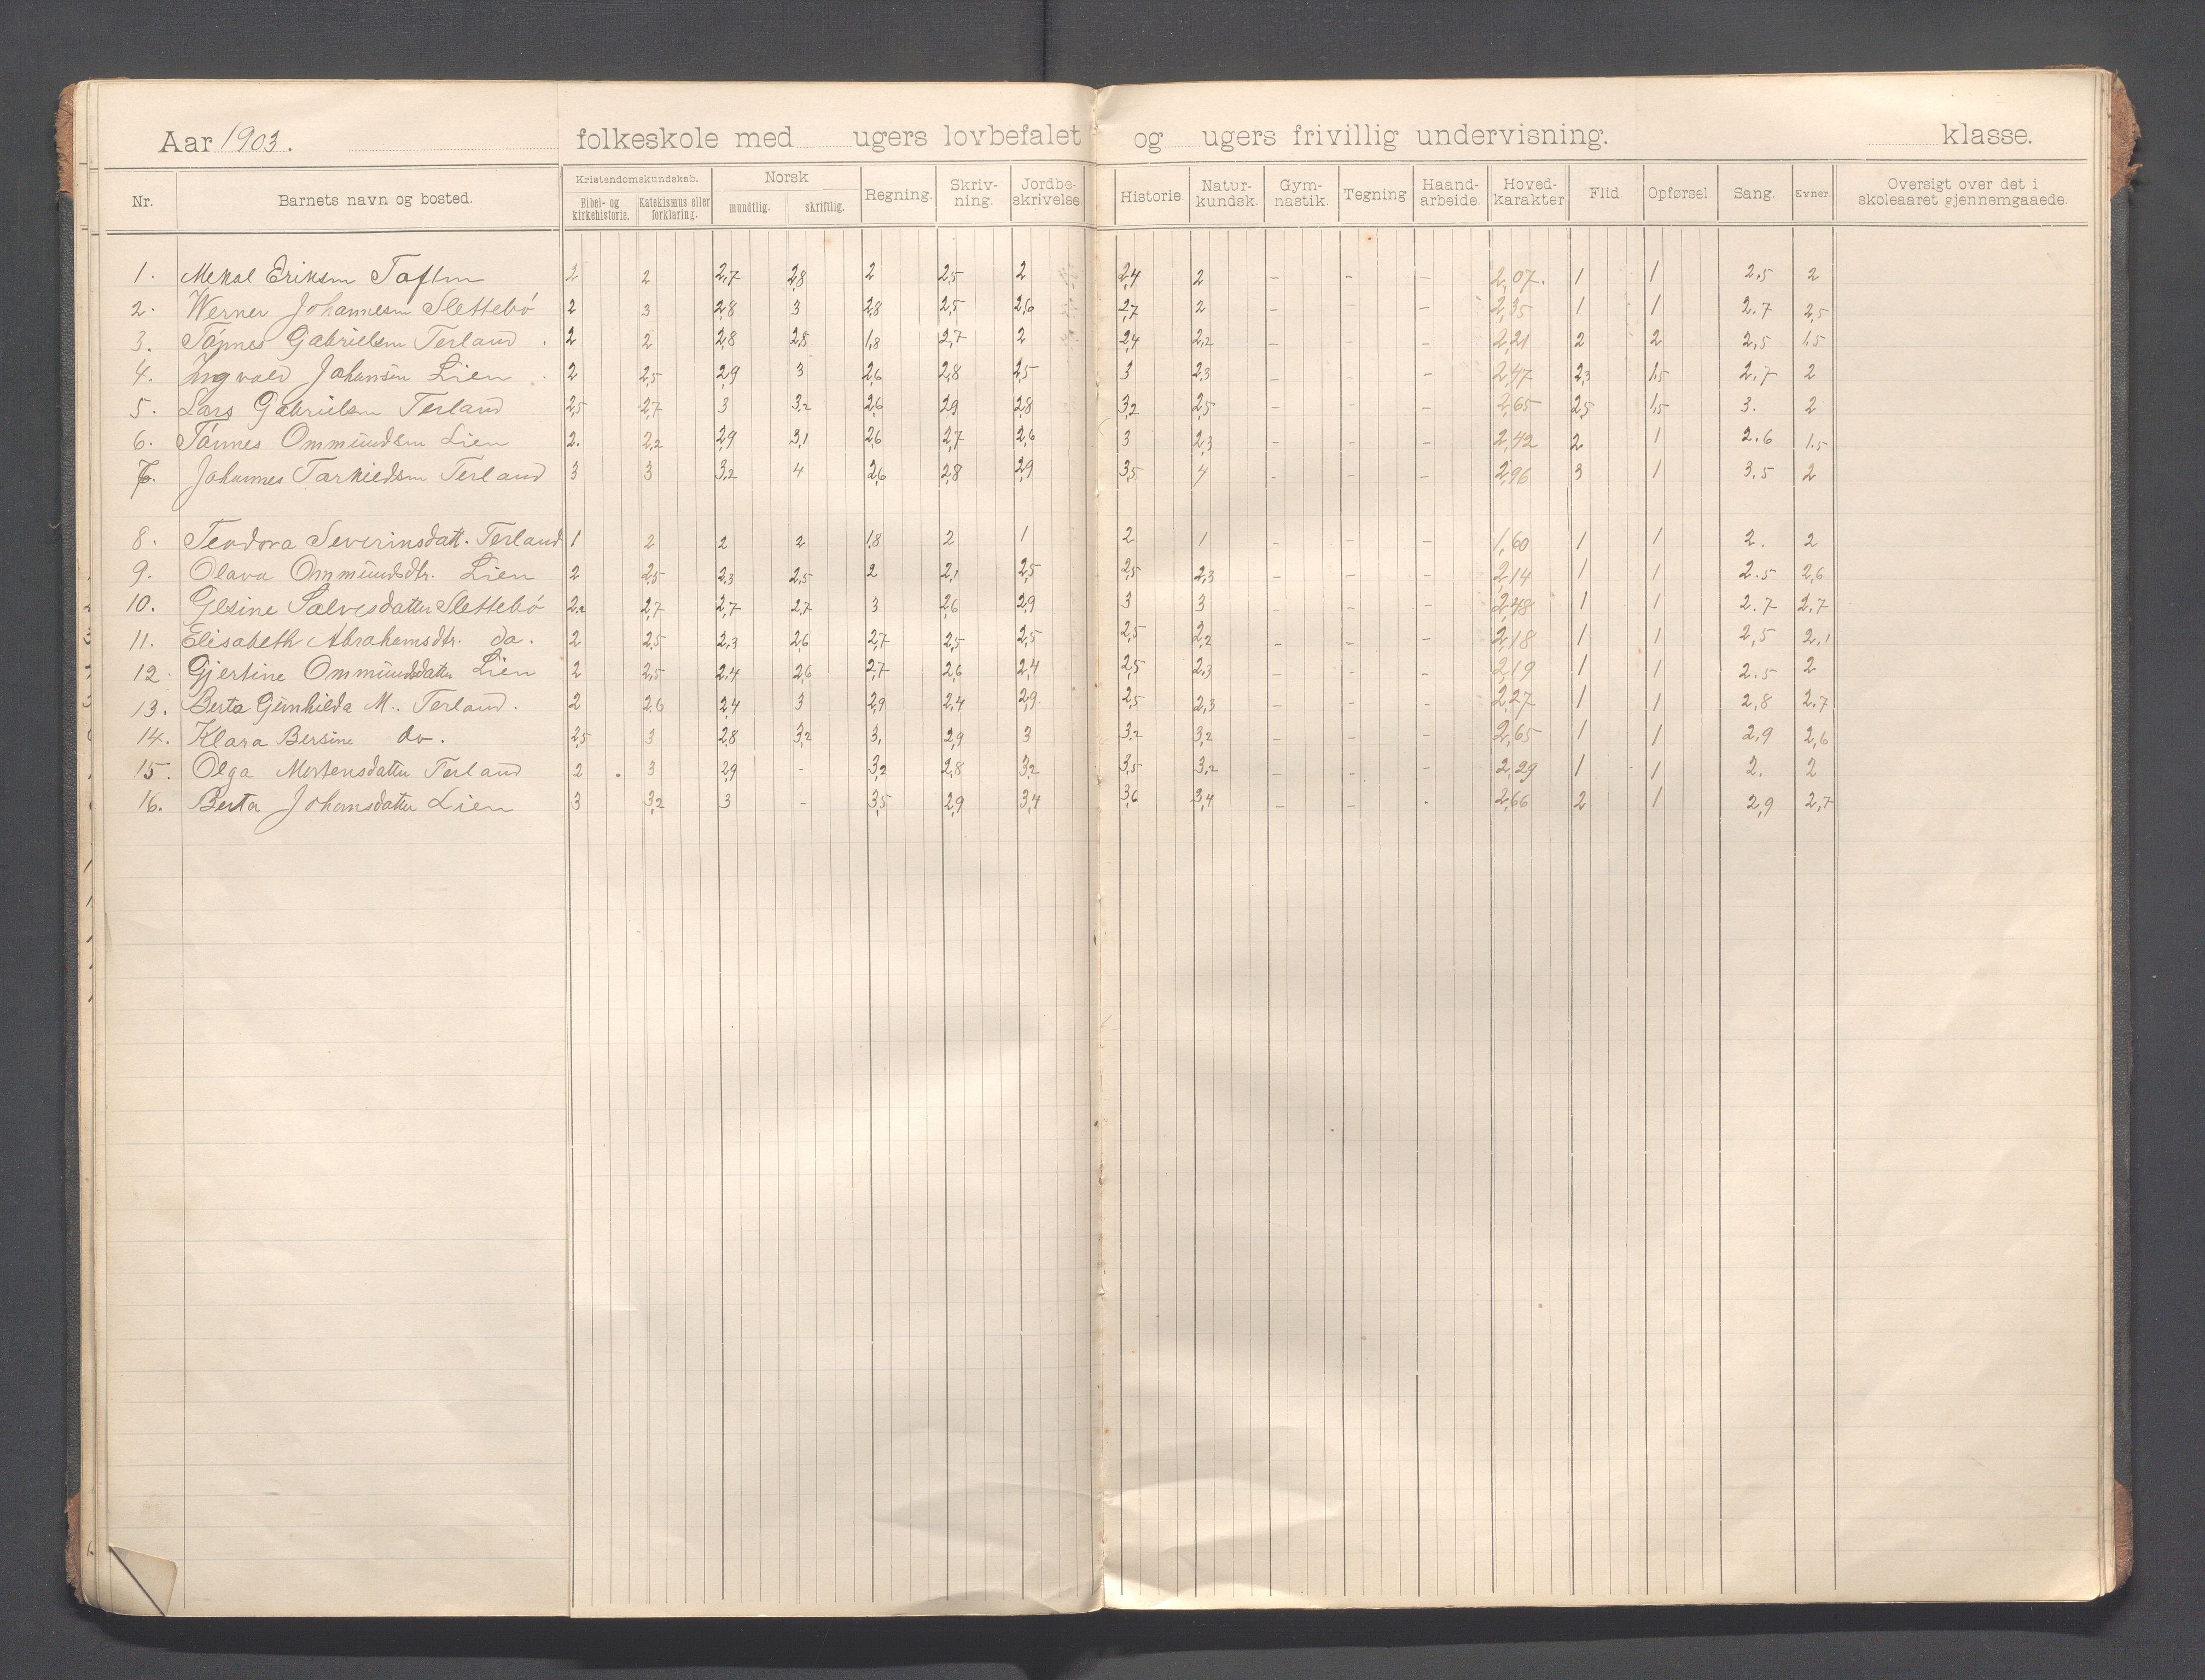 Aar 1903. folkeskole med ugers lovbefalet og ugers frivillig undervisning. klasse.
Nr. Barnets navn og bosted. Kristendomskundskab. Bibel- og kirkehistorie. Katekismus eller forklaring. Norsk mundtlig. skriftlig. Regning. Skriv-ning. Jordbe-skrivelse. Historie Natur-kundsk. Gym-nastik. Tegning Haand-arbeide. Hoved-karakter Flid Opførsel Sang. Evner. Oversigt over det i skoleaaret gjennemgaaede.
1. Mekal Eriksen 2 2 2,7 2,8 2 2,5 2 2,4 2 - - - 2,07. 1 1 2,5 2
2. Werner Johannesen Slettebö 2 3 2,8 3 2,8 2,5 2,6 2,7 2 - - - 2,35 1 1 2.7 2,5
3. Tönnes Gabrielsen Terland 2 2 2,8 2,8 1,8 2,7 2 2,4 2,2 - - - 2,21 2 2 2,5 1.5
4. Ingvald Johansen Lien 2 2,5 2,9 3 2,6 2,8 2,5 3 2,3 - - - 2,47 2,3 1,5 2,7 2
5. Lars Gabrielsen Terland 2,5 2,7 3 3,2 2,6 2,9 2,8 3,2 2,5 - - - 2,65 2,5 1,5 3. 2
6. Tönnes Ommundsen Lien 2. 2,2 2,9 3,1 2,6 2,7 2,6 3 2,3 - - - 2,42 2 1 2.6 1.5
7. Johannes Tarkieldsen Terland 3 3 3,2 4 2,6 2,8 2,9 3,5 4 - - - 2,96 3 1 3.5 2
8. Teodora Severinsdatt. Terland 1 2 2 2 1,8 2 1 2 1 - - - 1,60 1 1 2. 2
9. Olava Ommundsdtr. Lien 2 2,5 2,3 2,5 2 2,1 2,5 2,5 2,3 - - - 2,14 1 1 2.5 2,6
10. Gesine Salvesdatter Slettebö 2,2 2,7 2,7 2,7 3 2,6 2,9 3 3 - - - 2,48 1 1 2.7 2,7
11. Elisabeth Abrahamsdtr. do. 2 2,5 2,3 2,6 2,7 2,5 2,5 2,5 2,2 - - - 2,18 1 1 2,5 2,1
12. Gjertine Ommundsdatter Lien 2 2,5 2,4 2,6 2,7 2,6 2,4 2,5 2,3 - - - 2,19 1 1 2.5 2
13. Berta Gunhilda M. Terland. 2 2,6 2,4 3 2,9 2,4 2,9. 2,5 2,3 - - - 2,27 1 1 2,8 2.7
14. Klara Bersine do. 2,5 3 2,8 3,2 3, 2,9 3 3,2 3,2 - - - 2,65 1 1 2,9 2,6
15. Olga Mortensdatter Terland 2 3 2,9 - 3,2 2,8 3,2 3,5 3,2 - - - 2,29 1 1 2. 2
16. Berta Johansdatter Lien 3 3,2 3 - 3,5 2,9 3,4 3,6 3,4 - - - 2,66 2 1 2,9 2,7